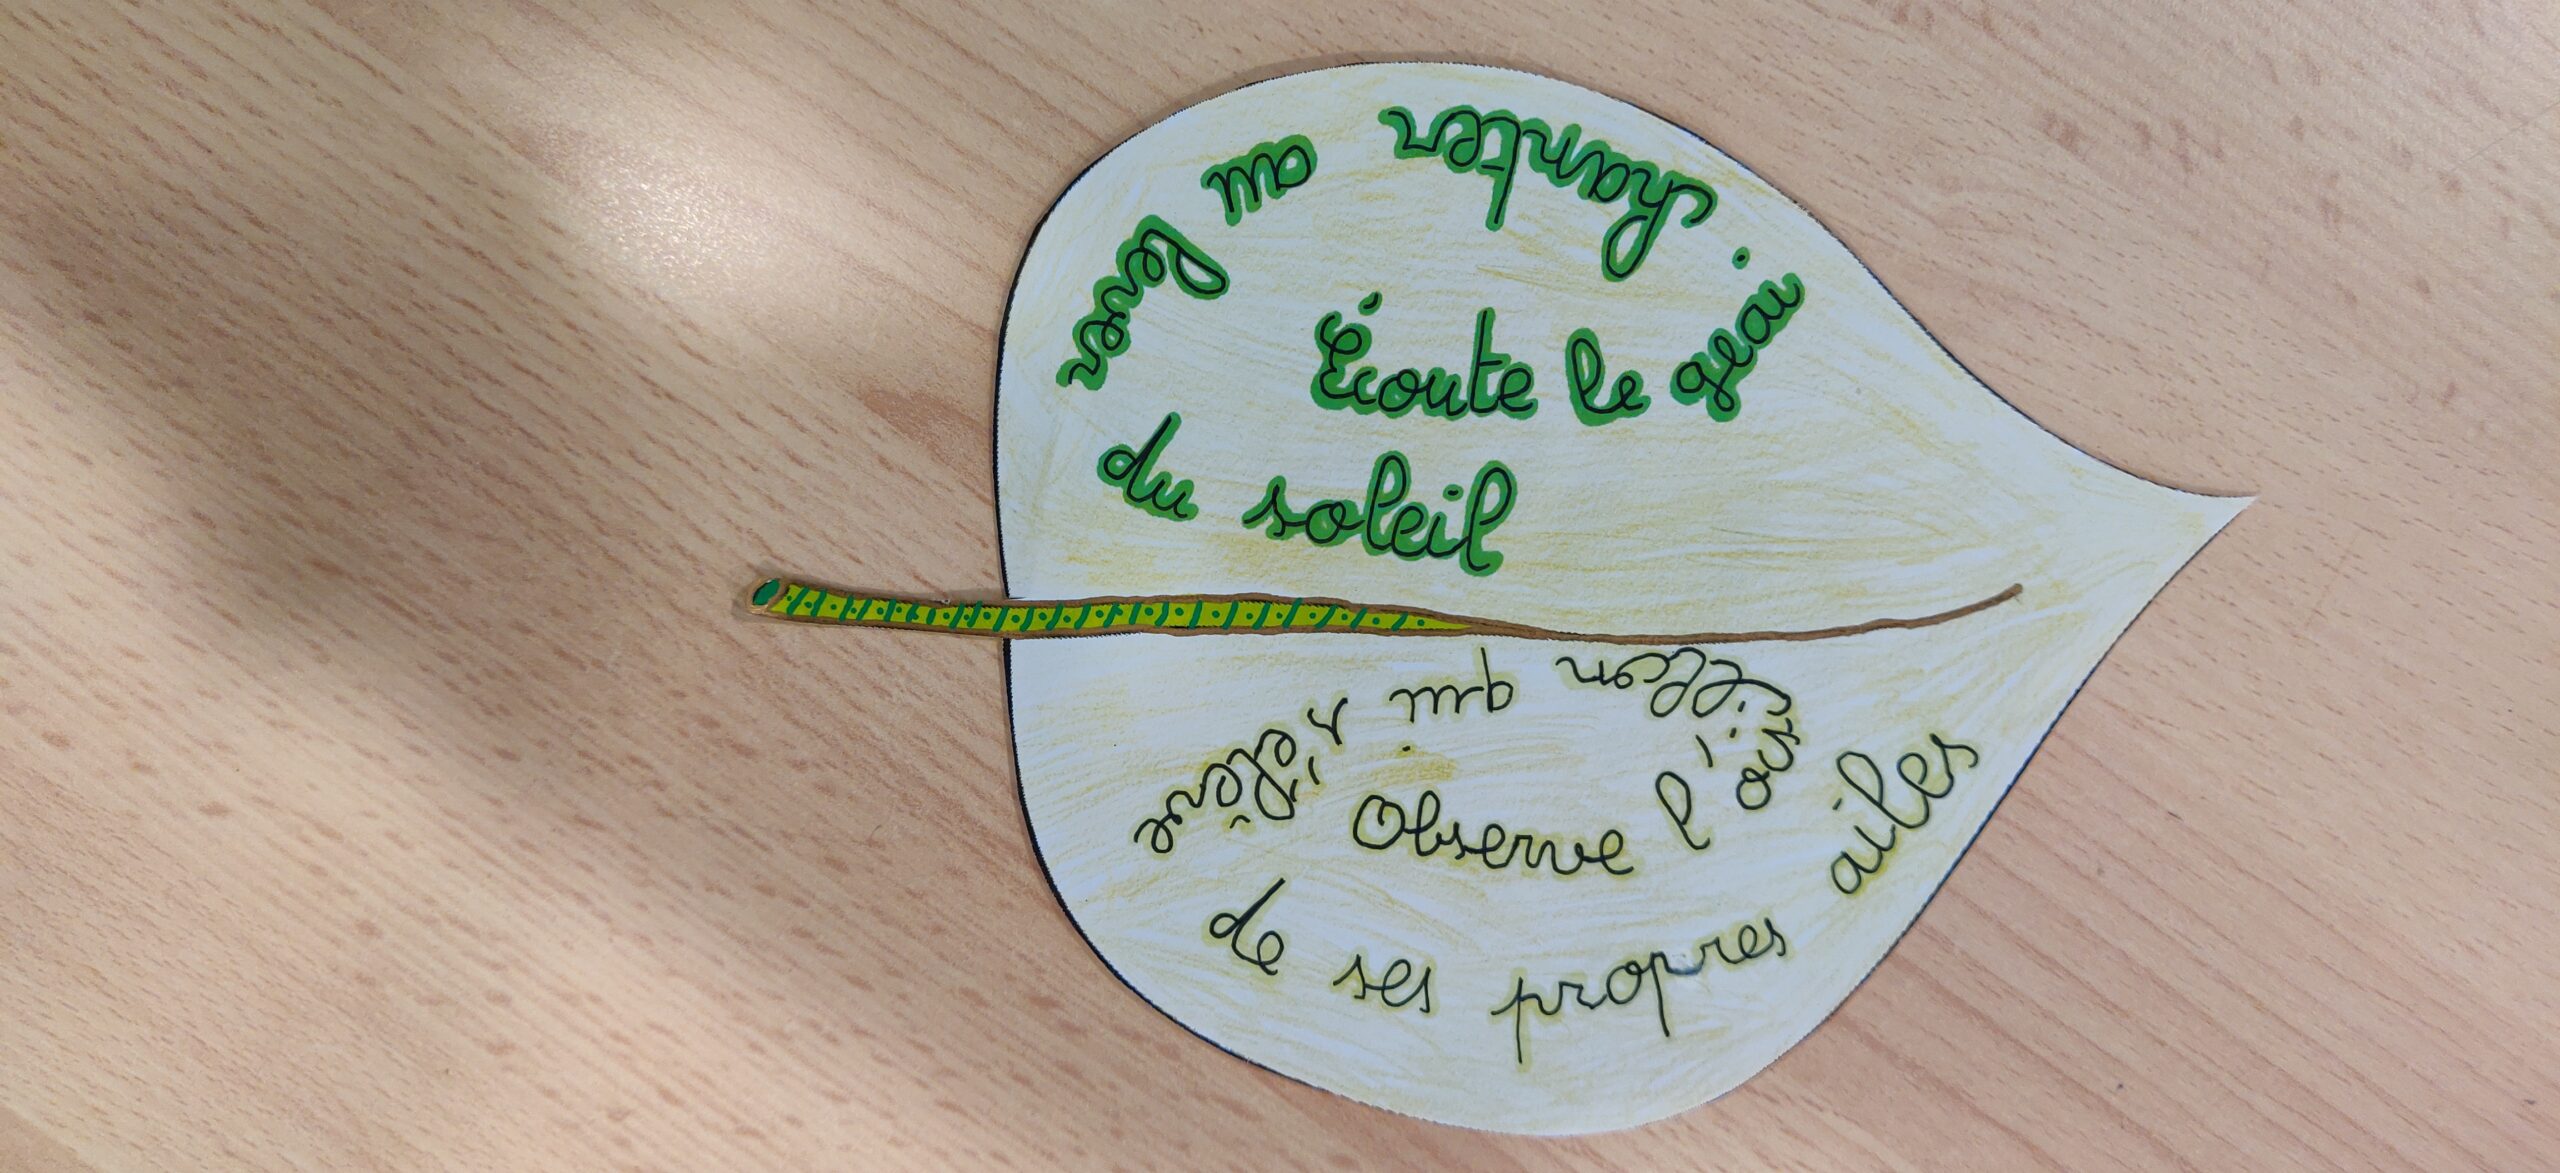 Écoute le geai
chanter
au
lever
du soleil
Observe l'oisillon
qui s'élève
de ses propres ailes